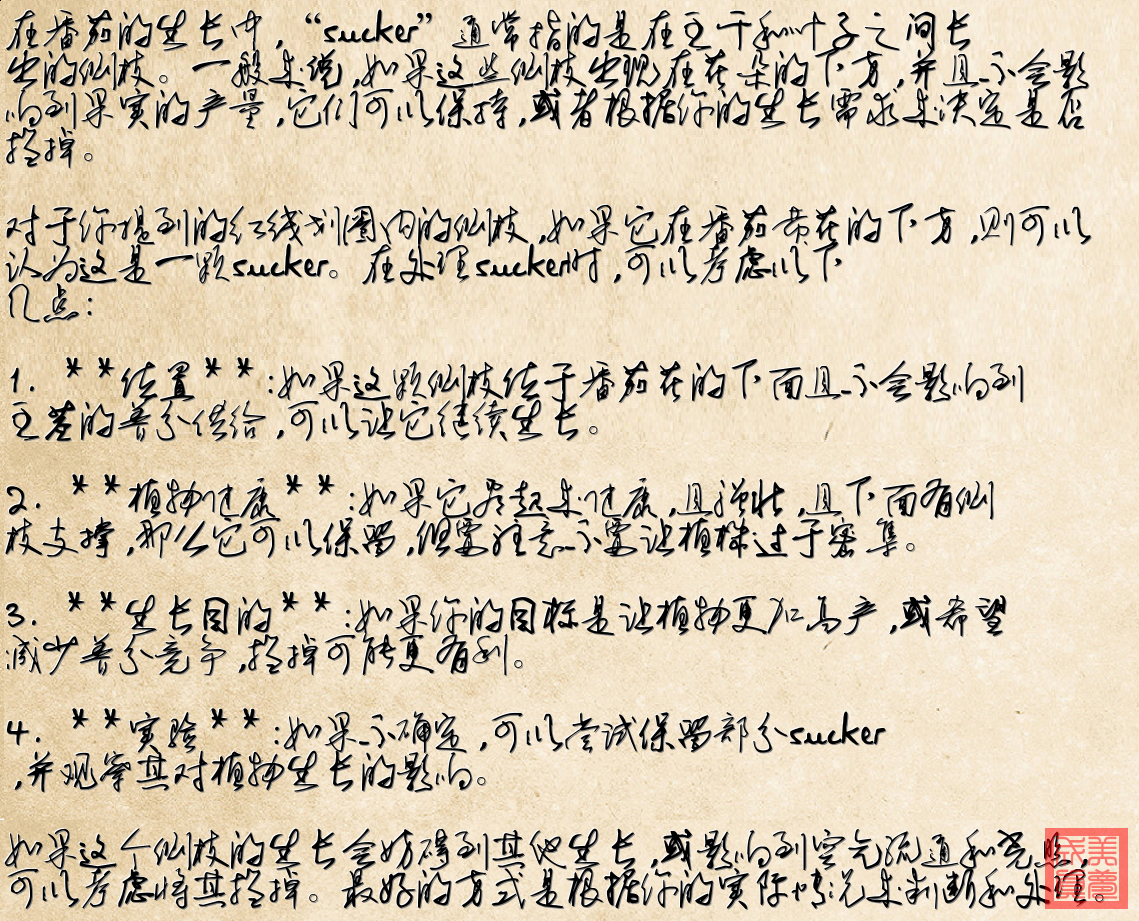 在番茄的生长中，“sucker”通常指的是在主干和叶子之间长
出的侧枝。一般来说，如果这些侧枝出现在花朵的下方，并且不会影
响到果实的产量，它们可以保持，或者根据你的生长需求来决定是否
掐掉。
对于你提到的红线划圈内的侧枝，如果它在番茄花苞的下方，则可以
认为这是一颗sucker。在处理sucker时，可以考虑以下
几点：
1. **位置**：如果这颗侧枝位于番茄花的下面且不会影响到
主茎的养分供给，可以让它继续生长。
2. **植物健康**：如果它看起来健康，且强壮，且下面有侧
枝支撑，那么它可以保留，但要注意不要让植株过于密集。
3. **生长目的**：如果你的目标是让植物更加高产，或希望
减少养分竞争，掐掉可能更有利。
4. **实验**：如果不确定，可以尝试保留部分sucker
，并观察其对植物生长的影响。
如果这个侧枝的生长会妨碍到其他生长，或影响到空气流通和光照，
可以考虑将其掐掉。最好的方式是根据你的实际情况来判断和处理。